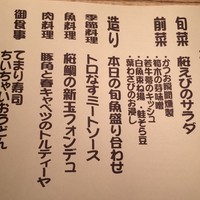 旬菜
桜えびのサラダ
前菜
・かつお瞬間燻製
・筍木の芽味噌
・若牛蒡のキッシュ
・白魚東寺 ・蛙そら豆
・葉わさびのお浸し
造り
本日の旬魚盛り合わせ
季節料理
トロなすミートソース
魚料理
桜鯛の新玉フォンデュ
肉料理
豚角と春キャベツのトルティーヤ
御食事
てまり寿司
ちいちゃいおうどん